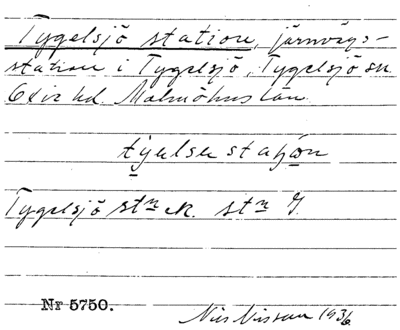 Tygelsjö station, järnvägs-
station i Tygelsjö, Tygelsjö sn
Oxie hd. Malmöhus län
Tygelsjö stn ek. stn
Nr 5750.
Nils Nilsson 1936